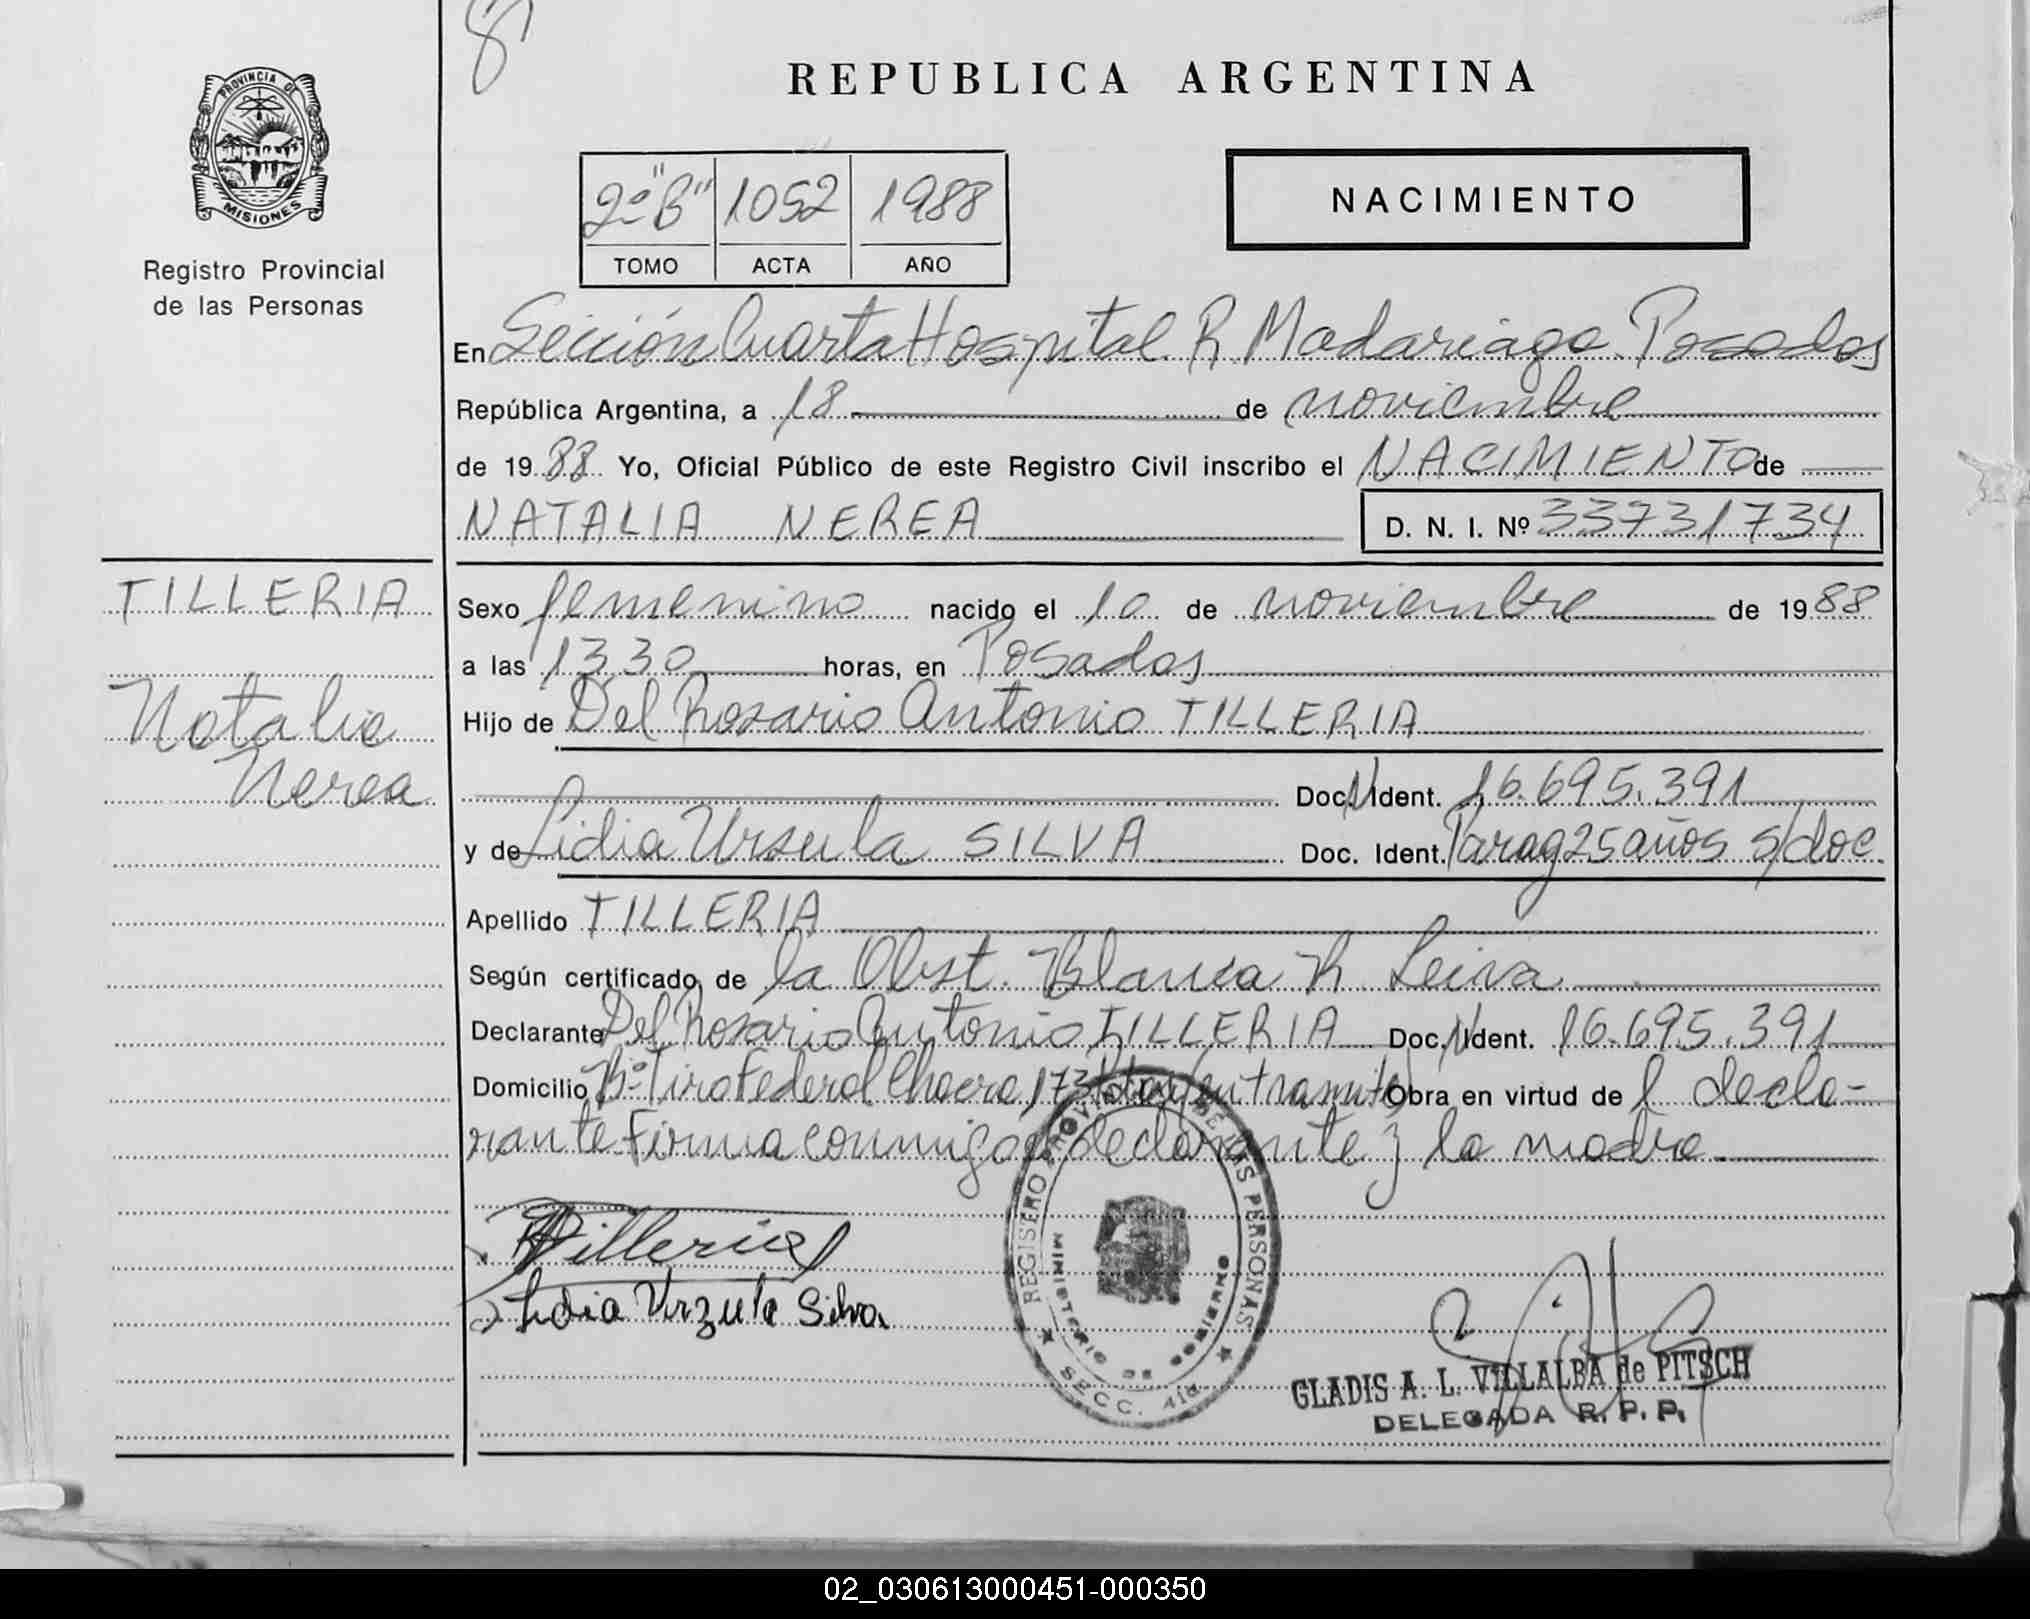 8
REPUBLICA ARGENTINA
PROVINCIA DE
MISIONES
Registro Provincial
de las Personas
2º "B" 1052 1988
TOMO ACTA AÑO
NACIMIENTO
En Sección Cuarta Hospital R Madariaga Posadas
República Argentina, a 18 de noviembre
de 1988 Yo, Oficial Público de este Registro Civil inscribo el NACIMIENTO de
NATALIA NEREA D. N. I. Nº 33731734
TILLERIA
Natalia
Nerea
Sexo femenino nacido el 10 de noviembre de 1988
a las 13 30 horas, en Posadas
Hijo de Del Rosario Antonio TILLERIA
Doc. N Ident. 16.695.391
y de Lidia Ursula SILVA Doc. Ident. Parag 25 años s/doc
Apellido TILLERIA
Según certificado de la Obst. Blanca R Leiva
Declarante Del Rosario Antonio TILLERIA Doc. N Ident. 16.695.391
Domicilio Bº Tiro Federal Chacra 173 (en tramite) Obra en virtud de l decla-
rante Firma conmigo el declarante y la madre
Tilleria
Lidia Urzula Silva
REGISTRO PROVINCIAL DE LAS PERSONAS
MINISTERIO DE GOBIERNO
SECC. 4ta
GLADIS A. L. VILLALBA de PITSCH
DELEGADA R. P. P.
02_030613000451-000350